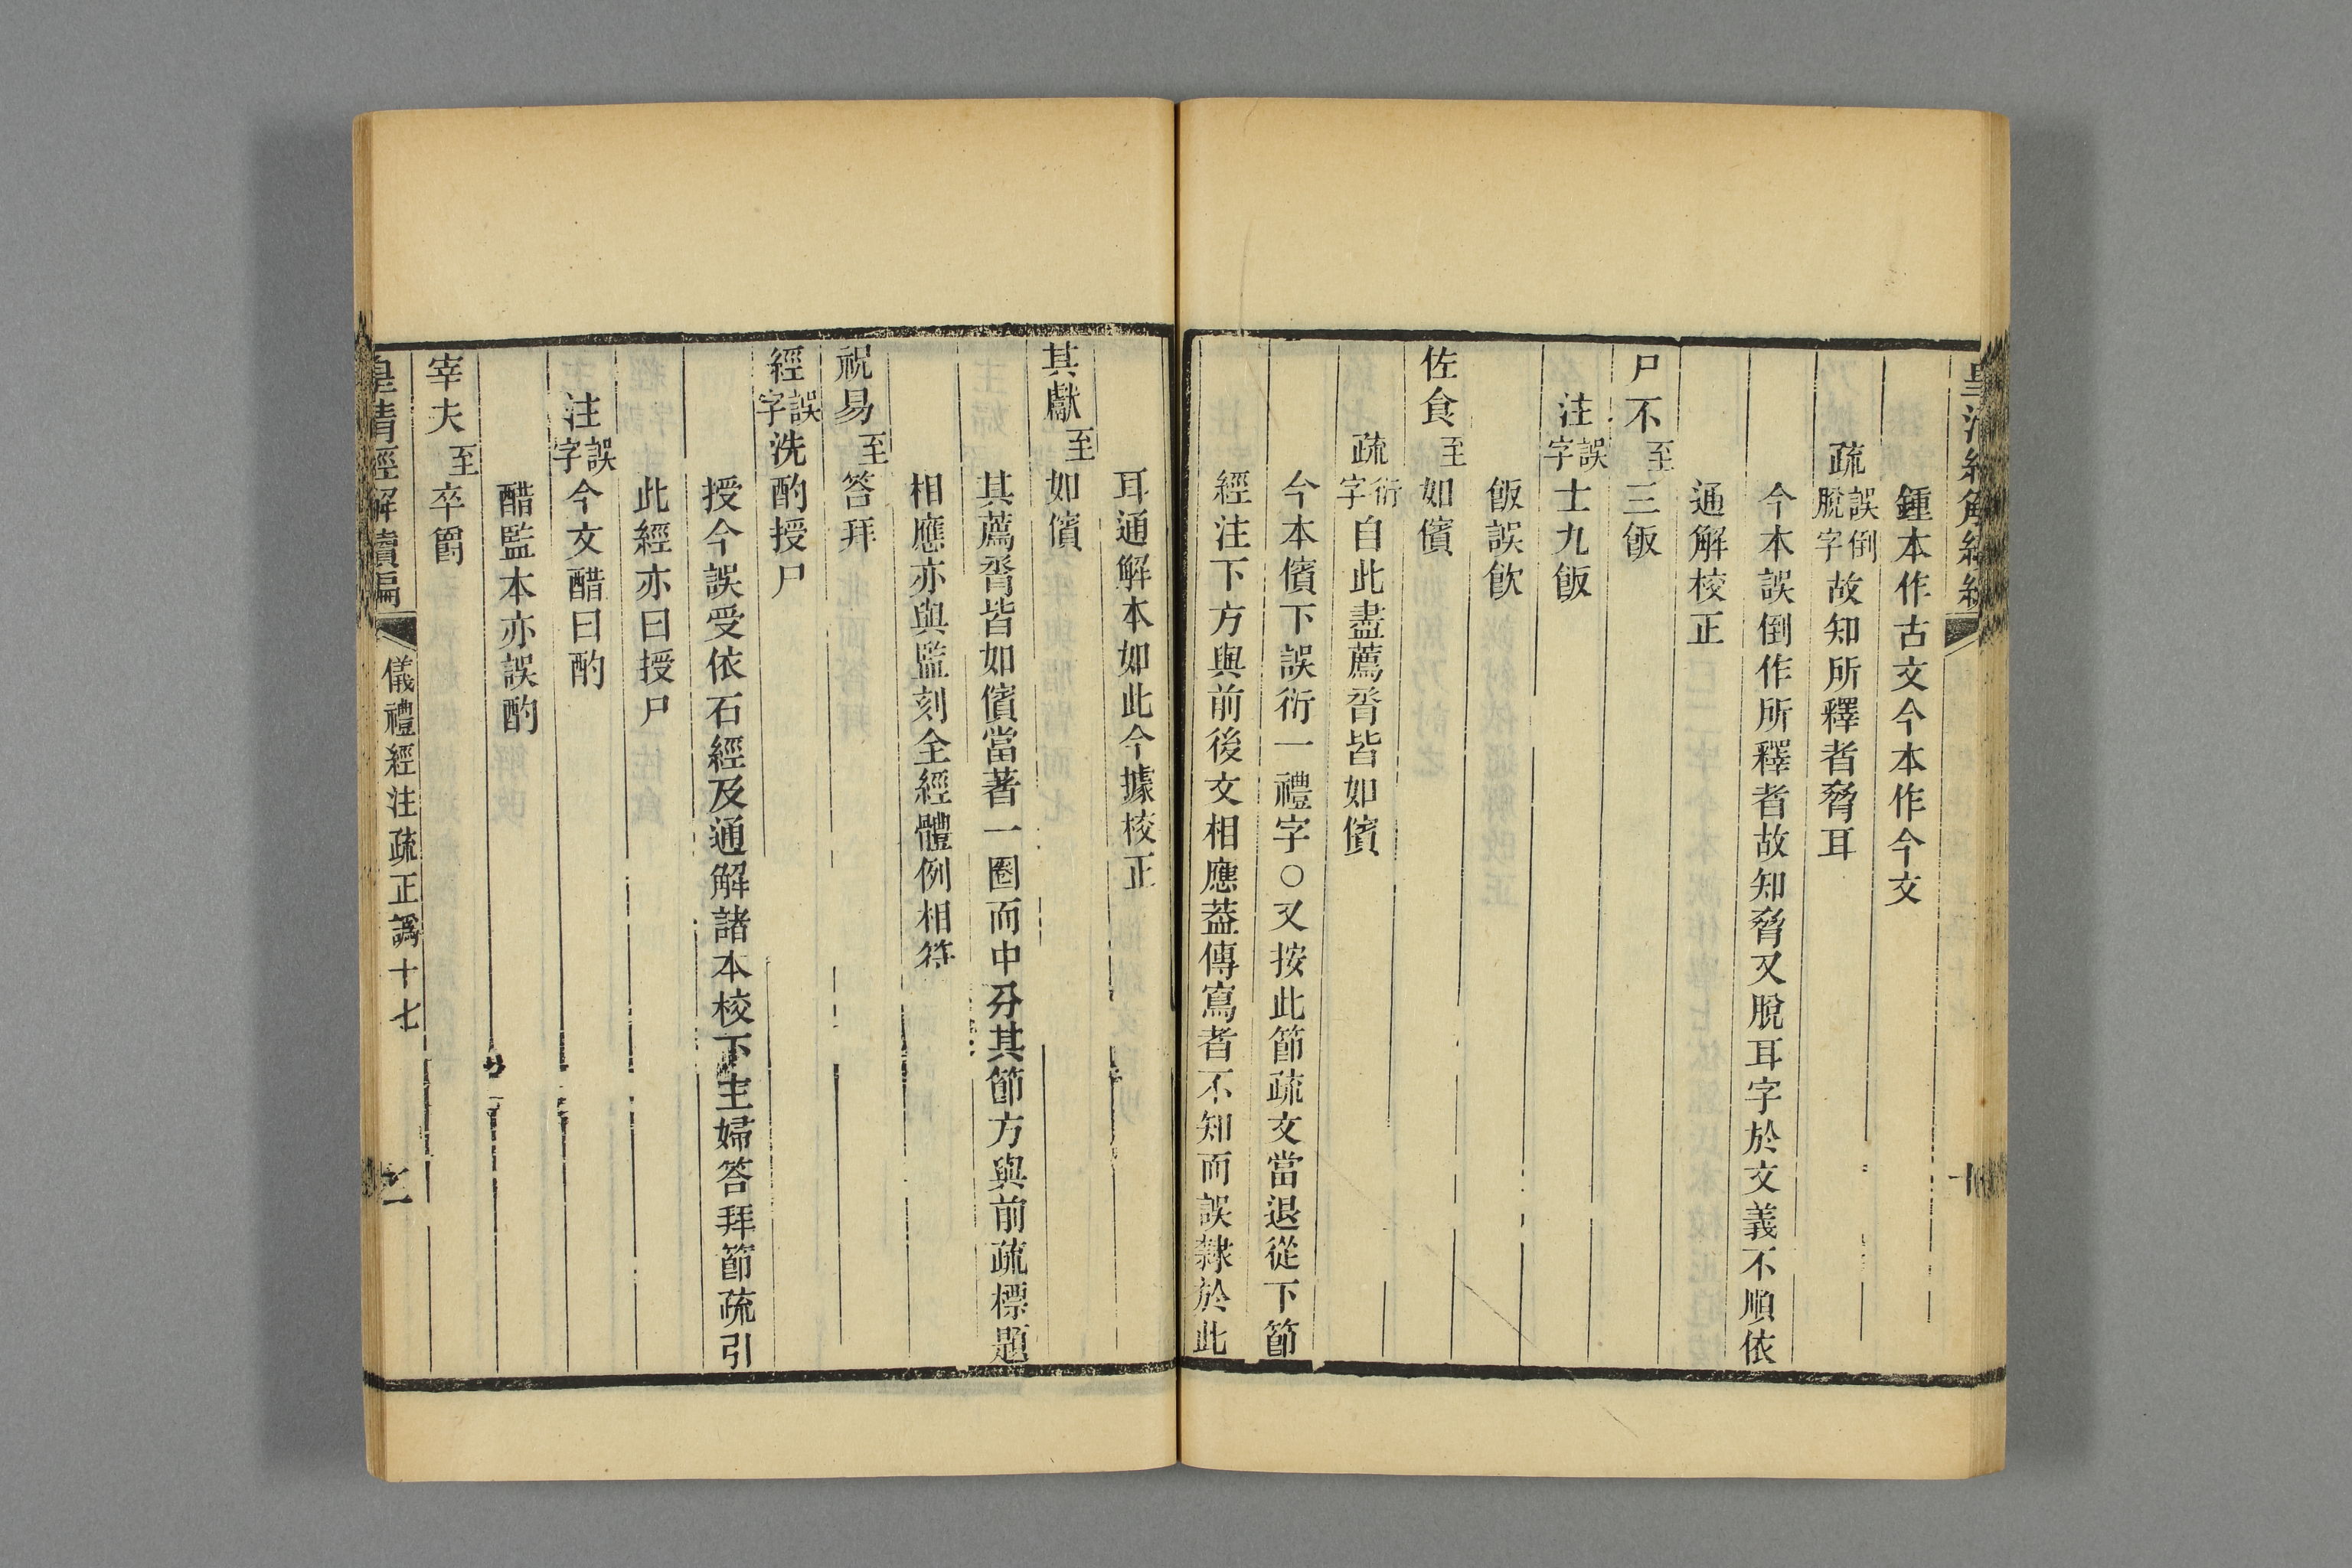 鍾本作古文今本作今文
疏誤倒脫字故知所釋者脅耳
今本誤倒作所釋者故知脅又脫耳字於文義不順依
通解校正
尸不至三飯
注誤字士九飯
飯誤飲
佐食至如儐
疏衍字自此盡薦脀皆如儐
今本儐下誤衍一禮字○又按此節疏文當退從下節
經注下方與前後文相應葢傳寫者不知而誤隸於此
耳通解本如此今據校正
其獻至如儐
其薦脀皆如儐當著一圈而中分其節方與前疏標題
相應亦與監刻全經體例相符
祝易至答拜
經誤字洗酌授尸
授今誤受依石經及通解諸本校下主婦答拜節疏引
此經亦曰授尸
注誤字今文醋曰酌
醋監本亦誤酌
宰夫至卒爵
皇清經解續編 儀禮經注疏正譌十七